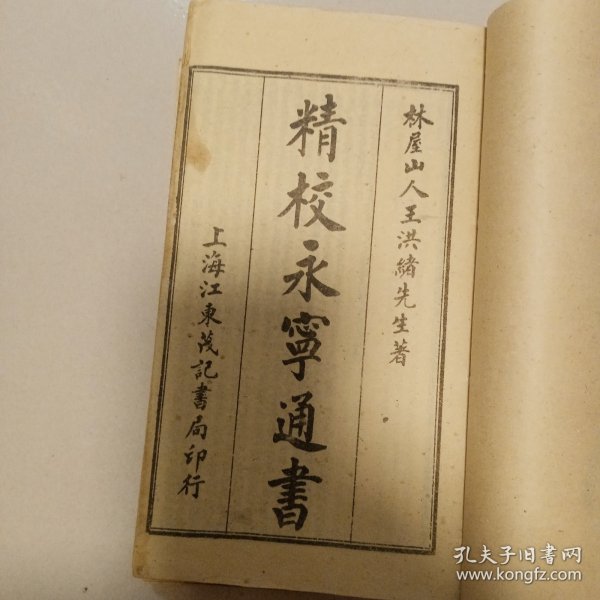 林屋山人王洪緒先生著
精校永寧通書
上海江東茂記書局印行
孔夫子旧書网
www.kongfz.com